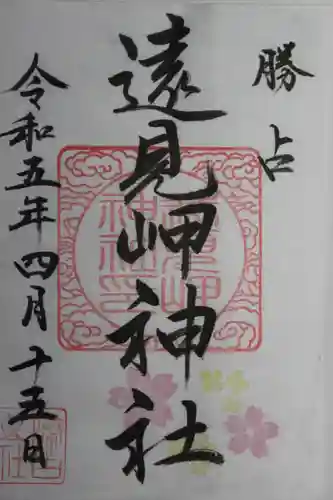 勝占
遠見岬神社
令和五年四月十五日